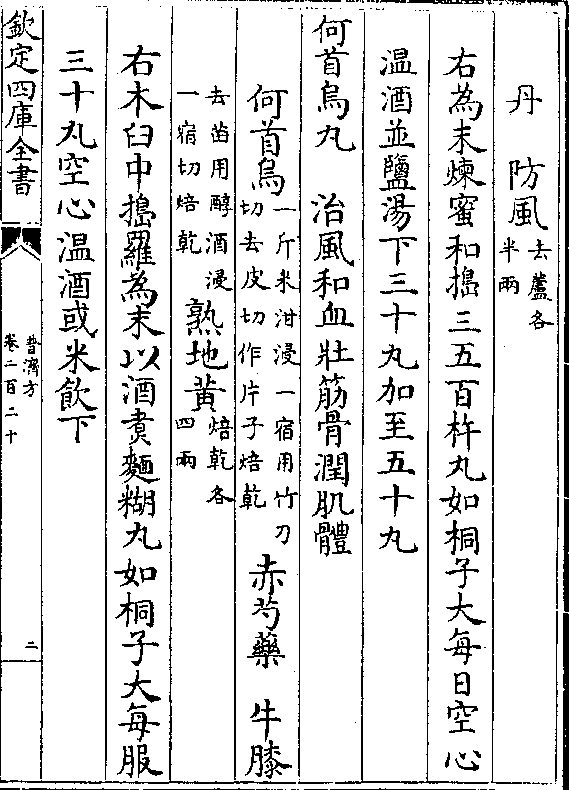 丹　防風去蘆各半兩
右為末煉蜜和搗三五百杵丸如桐子大每日空心
温酒並鹽湯下三十丸加至五十丸
何首烏丸　治風和血壯筋骨潤肌體
何首烏一斤米泔浸一宿用竹刀切去皮切作片子焙乾　赤芍藥　牛膝
去苗用醇酒浸一宿切焙乾　熟地黄焙乾各四兩
右木臼中搗羅為末以酒煑麵糊丸如桐子大每服
三十丸空心温酒或米飲下
欽定四庫全書
普濟方
卷二百二十
二